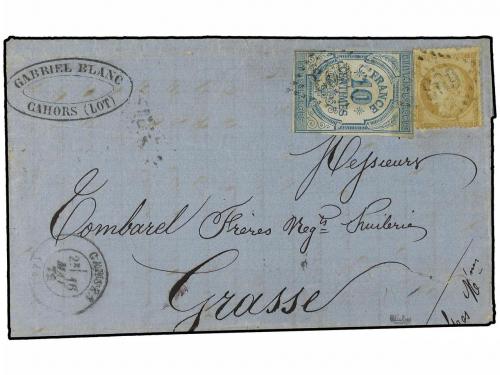 GABRIEL BLANC
CAHORS (LOT)
FRANCE
10
CENTIMES
Messieurs
Tombarel Frères Negts Huilerie
Grasse
CAHORS
2E
16
MAI